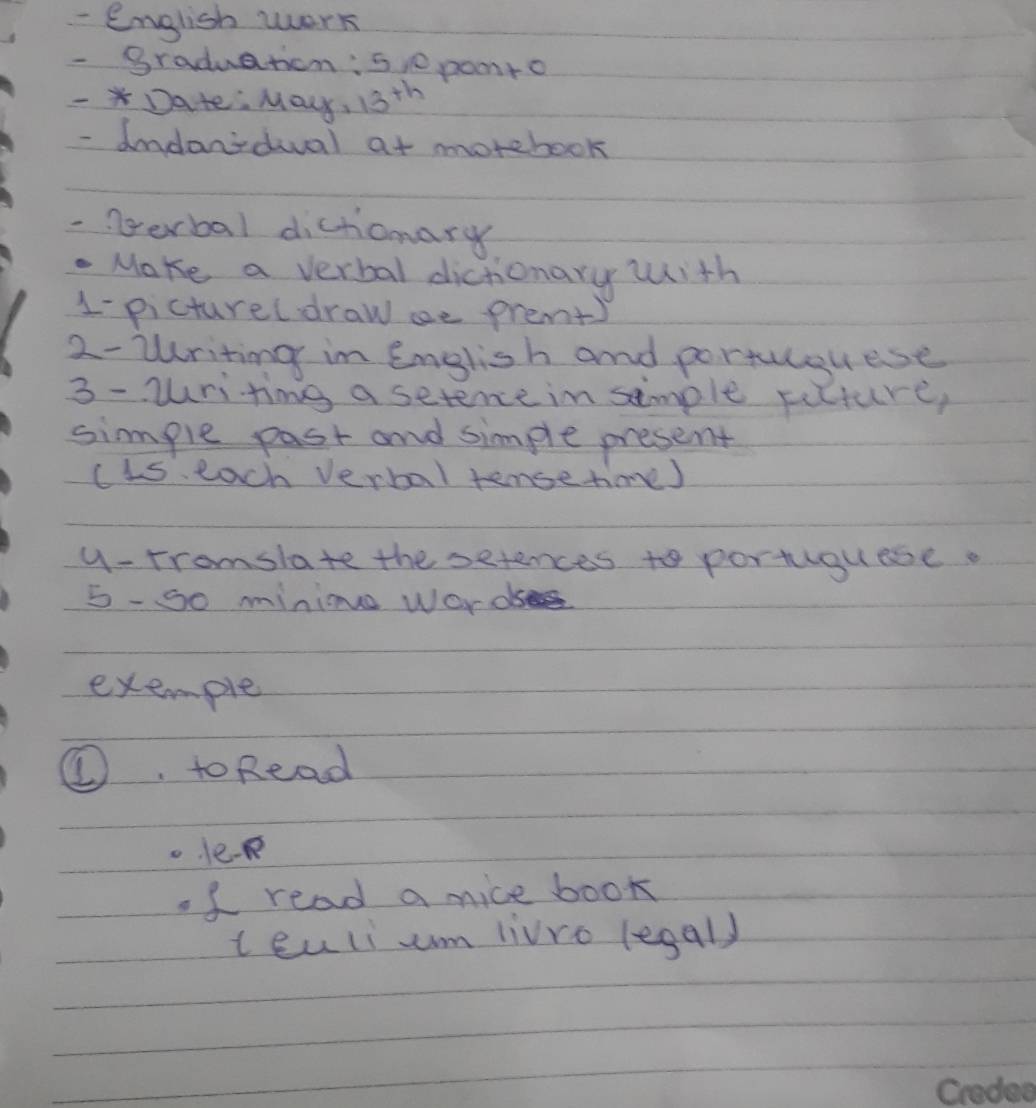 - English work
- Graduation: 5,0 ponto
- * Date: May, 13th
- Indanidual at notebook
- Verbal dictionary
• Make a verbal dictionary with
1- picture (draw or prent)
2- Writing in English and portuguese
3- Writing a setence in simple future,
simple past and simple present
(15 each verbal tense time)
4- translate the setences to portuguese.
5- 50 minimo words
exemple
1 . to Read
• ler
• I read a nice book
(Eu li um livro legal)
Credea